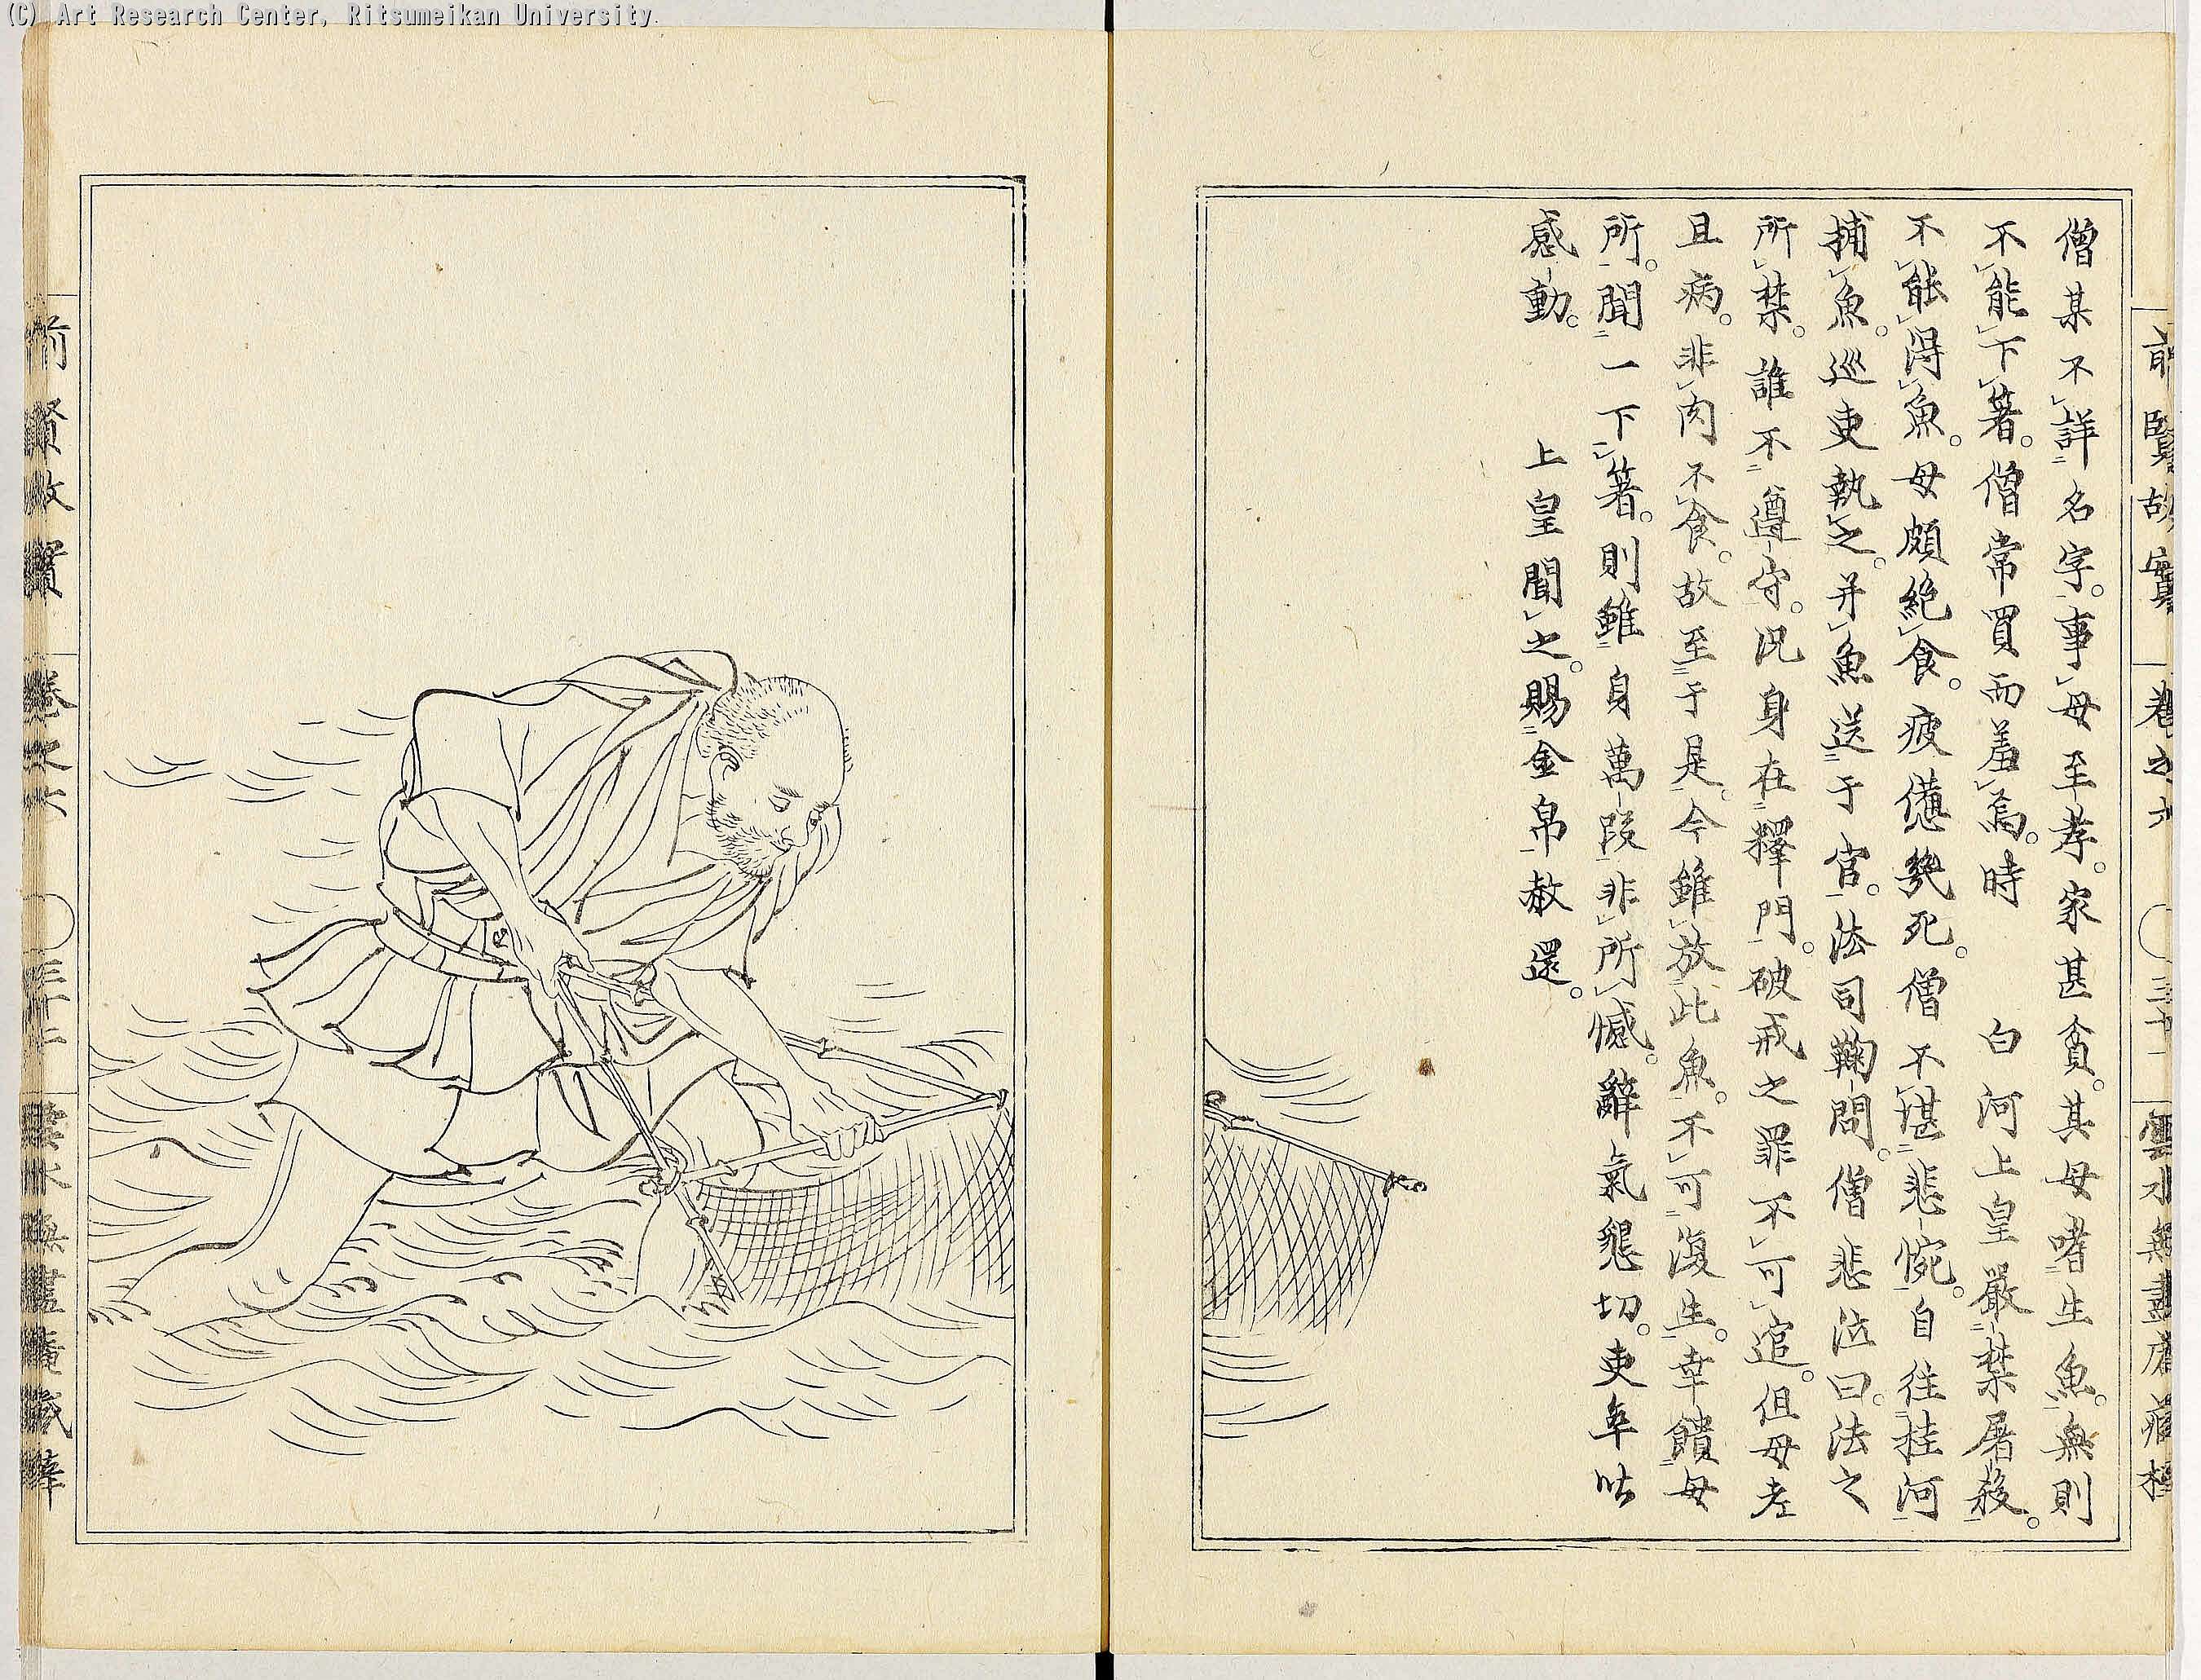 (C) Art Research Center, Ritsumeikan University.
前賢故實 卷之六 〇三十一 雲水無盡庵藏
僧某不詳名字。事母至孝。家甚貧。其母嗜生魚。無則
不能下箸。僧常買而羞焉。時 白河上皇嚴禁屠殺。
不能得魚。母頗絶食。疲憊幾死。僧不堪悲惋。自往桂河
捕魚。巡吏執之。并魚送于官。法司鞠問。僧悲泣曰。法之
所禁。誰不遵守。況身在釋門。破戒之罪不可逭。但母老
且病。非肉不食。故至于是。今雖放此魚。不可復生。幸饋母
所。聞一下箸。則雖身萬段。非所憾。辭氣懇切。吏卒皆
感動。 上皇聞之。賜金帛赦還。
前賢故實 卷之六 〇 雲水無盡庵藏